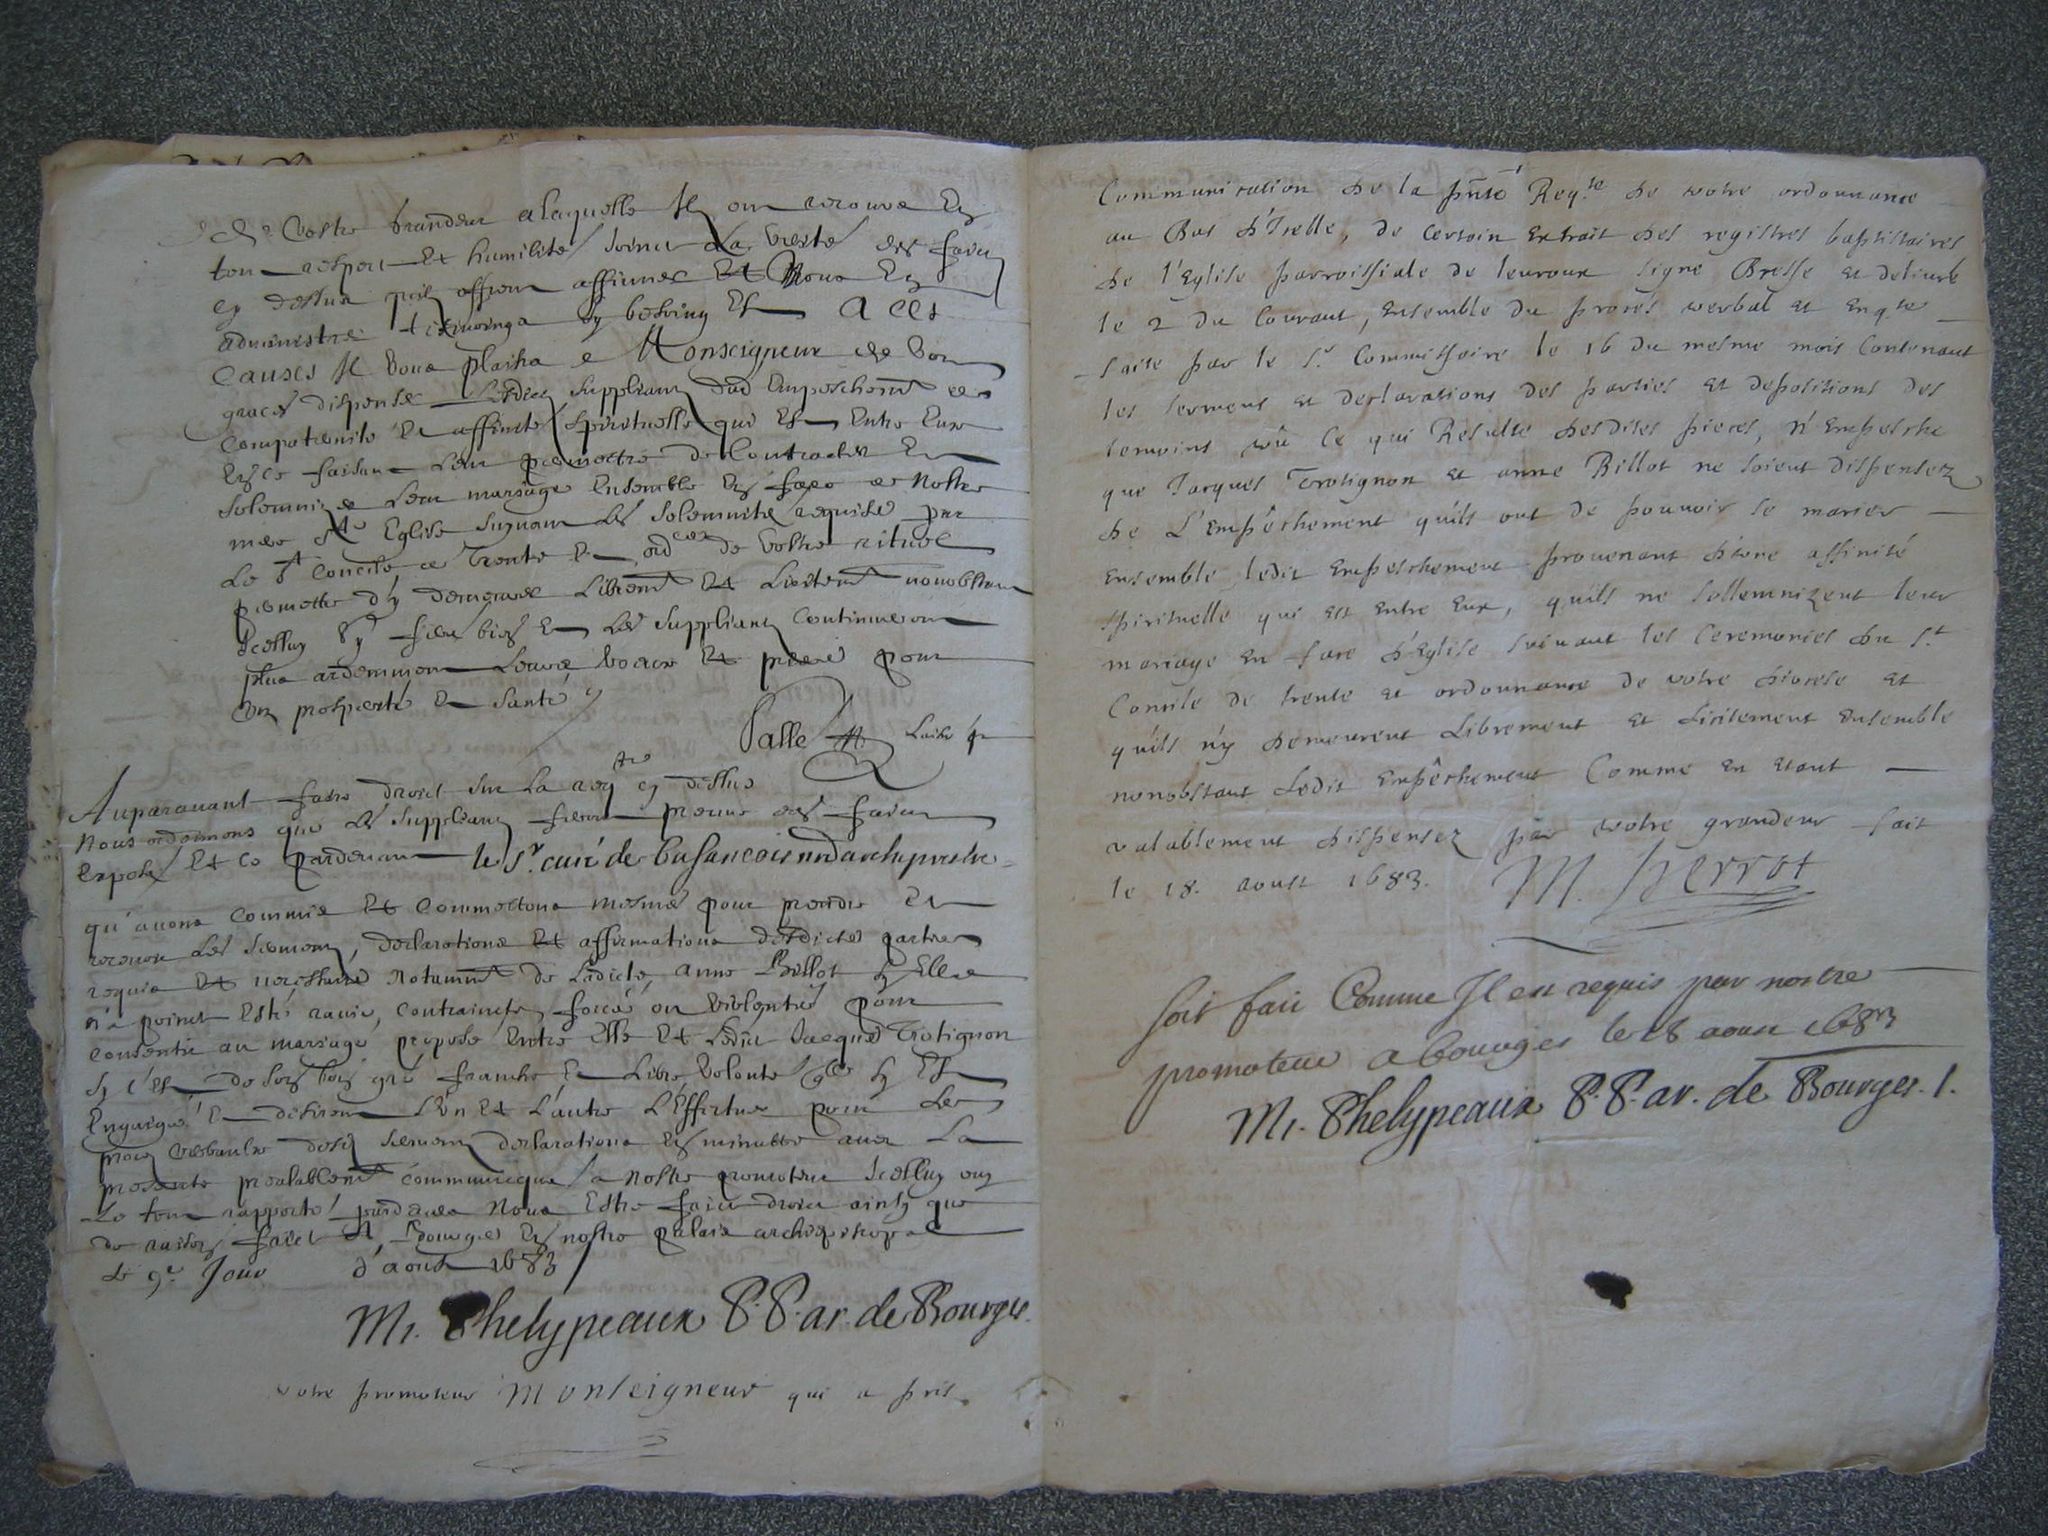 Vostre Grandeur a laquelle Ilz ont recours En
tout respect Et humilité, Joinct La verité des faictz
cy dessus quilz offrent affirmer Et Nous En
administrer tesmoings sy besoing Est A ces
Causes Il vous plaira Monseigneur de vos
graces dispenser Lesdictz suppliantz dud Empeschemt de
Compaternité Et affinité spirituelle qui Est Entre Eux
Ce faisant Leur permettre de Contracter Et
solemnizer Leur mariage Ensemble En face de Nostre
mere Ste Eglise suyvant Les solemnités requises par
Le St Concile de Trente Et ordces de Vostre rituel
permettre d'y demeurer Libremt Et Licitemt nonobstant
Icelluy Sy ferez bien Et Les suppliantz Continueront
plus ardemment Leurs voeux Et prieres pour
Vre prosperité Et santé
Salle
Auparavant faire droict sur La reqte cy dessus
Nous ordonnons que Les suppliantz feront preuve des faictz
exposés Et ce pardevant le Sr. curé de busancois nre archiprestre
qu'avons Commis Et Commettons mesmes pour prendre Et
recevoir Les sermentz, declarations Et affirmations desdictes parties
requis Et necessaires Notamment de Ladicte anne Billot sy Elle
n'a poinct Esté ravie, contraincte, forcée ou violentée pour
consentir au mariage proposé Entre Elle Et Ledict Jacques Trotignon
sy c'est de son bon gré franche Et Libre volonté qlle sy Est
Engaigée Et desirent L'un Et L'autre L'Effectuer pour Les
procez verbaulx desd sermentz declarations En minutte avec La
presente prealablemt communicquée a Nostre promoteur Icelluy ouy
Le tout rapporté pardevers Nous Estre faict droict ainsy que
de raison faict A Bourges En nostre palais archiepiscopal
Le 9e Jour d'aoust 1683
Mi. Phelypeaux P. P. ar. de Bourges.
votre promoteur Monseigneur qui a pris
Communication de la pñte Reqte de votre ordonnance
au Bas d'Icelle, de certain Extrait des registres baptistaires
de l'Eglise parroissiale de levroux signé Bresse et delivré
le 2 du Courant, Ensemble du procés verbal et Enqte
faite par le Sr Commissaire le 16 du mesme mois Contenant
les sermens et declarations des parties et depositions des
temoins vû Ce qui Resulte desdites pieces, n'Empesche
que Jacques Trotignon et anne Billot ne soient dispensez
de L'empêchement quils ont de pouvoir se marier
Ensemble, ledit Empeschement provenant d'une affinité
spirituelle qui est Entre Eux, quils ne sollemnizent leur
mariage En face d'Eglise suivant les Ceremonies du St
Concile de trente et ordonnance de votre diocese et
quils n'y demeurent Librement et Licitement Ensemble
nonobstant Ledit Empêchement Comme en etant
valablement dispensez par votre grandeur fait
le 18. aoust 1683. M. Perrot
Soit fait Comme Il est requis par nostre
promoteur a bourges le 18 aoust 1683
Mi. Phelypeaux P. P. ar. de Bourges. 1.